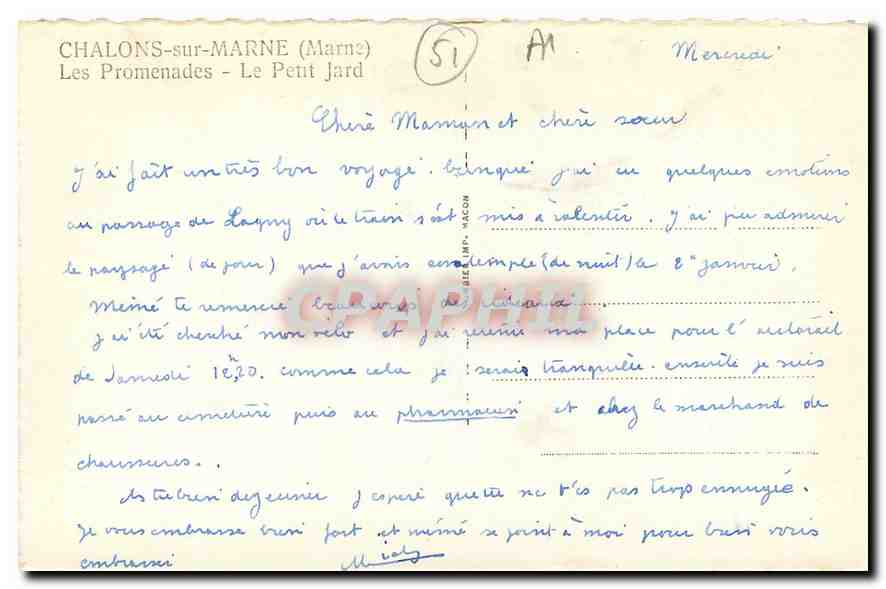 CHALONS-sur-MARNE (Marne)
Les Promenades - Le Petit Jard
51
A1
Mercredi
Chère Maman et chère sœur
J'ai fait un très bon voyage. bien que j'ai eu quelques emotions
au passage de Lagny où le train s'est mis à ralentir. J'ai pu admirer
le paysage (de jour) que j'avais contemplé (de nuit) le 2" janvier.
Mémé te remercie beaucoup des
J'ai été cherché mon vélo et j'ai retenu ma place pour l'autorail
de Samedi 12h20. comme cela je serais tranquille. ensuite je suis
passé au cimetière puis au pharmacien et chez le marchand de
chaussures..
As tu bien dejeuner J'espère que tu ne t'es pas trop ennuyée.
Je vous embrasse bien fort et mémé se joint à moi pour bien vous
embrasser
IMP. MACON
CPAPHIL